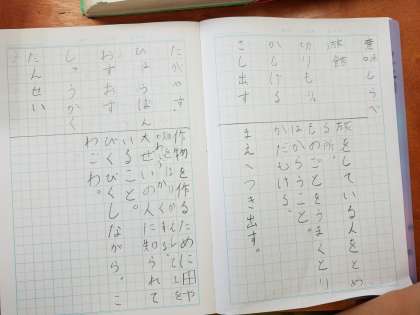 意味しらべ
旅館
切りもり
かしげる
こし出す
旅をしている人をとめ
る所。
ものごとをうまくとり
はからうこと。
かたむける。
まえへつき出す。
たがやす
ひょうばん
おずおず
しゅうかく
たんせい
作物を作るために田や
畑をほりかえして土を
やわらかくする。
大せいの人に知られて
いること。
びくびくしながら。こ
わごわ。